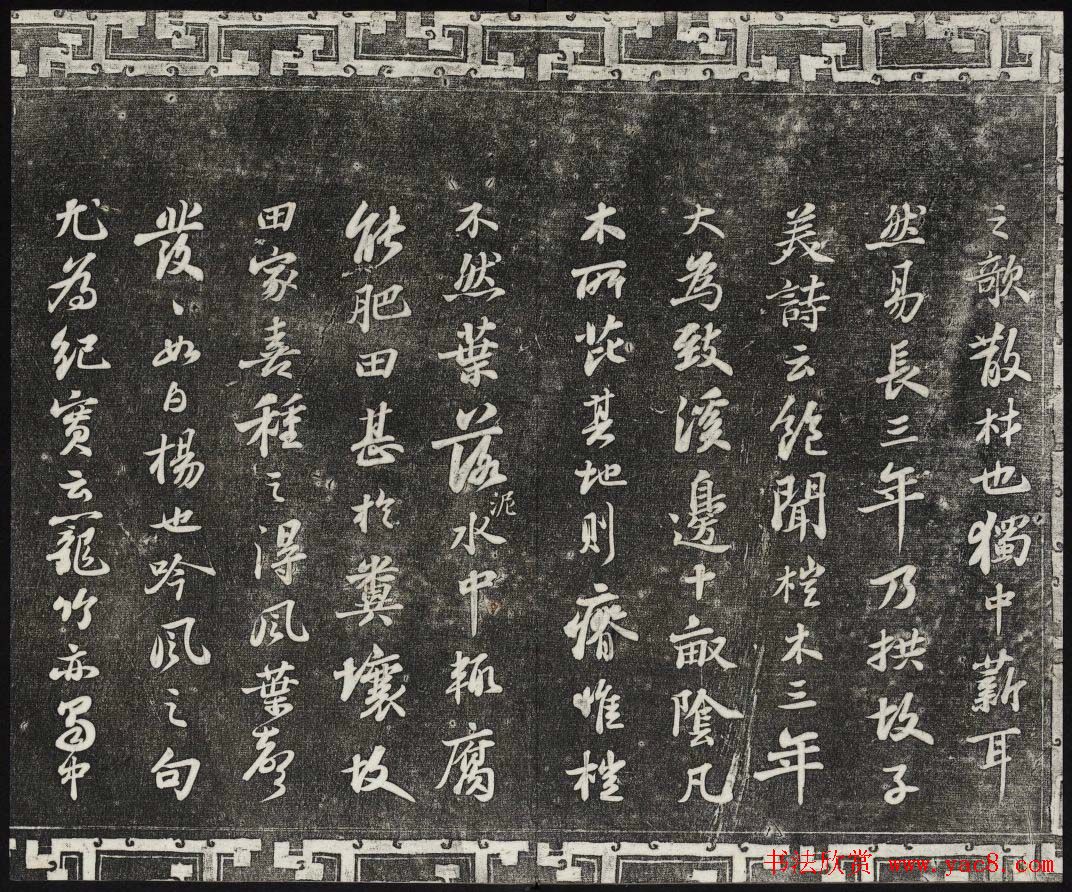 之歌散材也獨中薪耳
然易長三年乃拱故子
美詩云飽聞榿木三年
大為致溪邊十畝陰凡
木所芘其地則瘠惟榿
不然葉落泥水中輒腐
能肥田甚於糞壤故
田家喜種之得風葉聲
發〻如白楊也吟風之句
尤為紀實云龍竹亦蜀中
书法欣赏 www.yac8.com